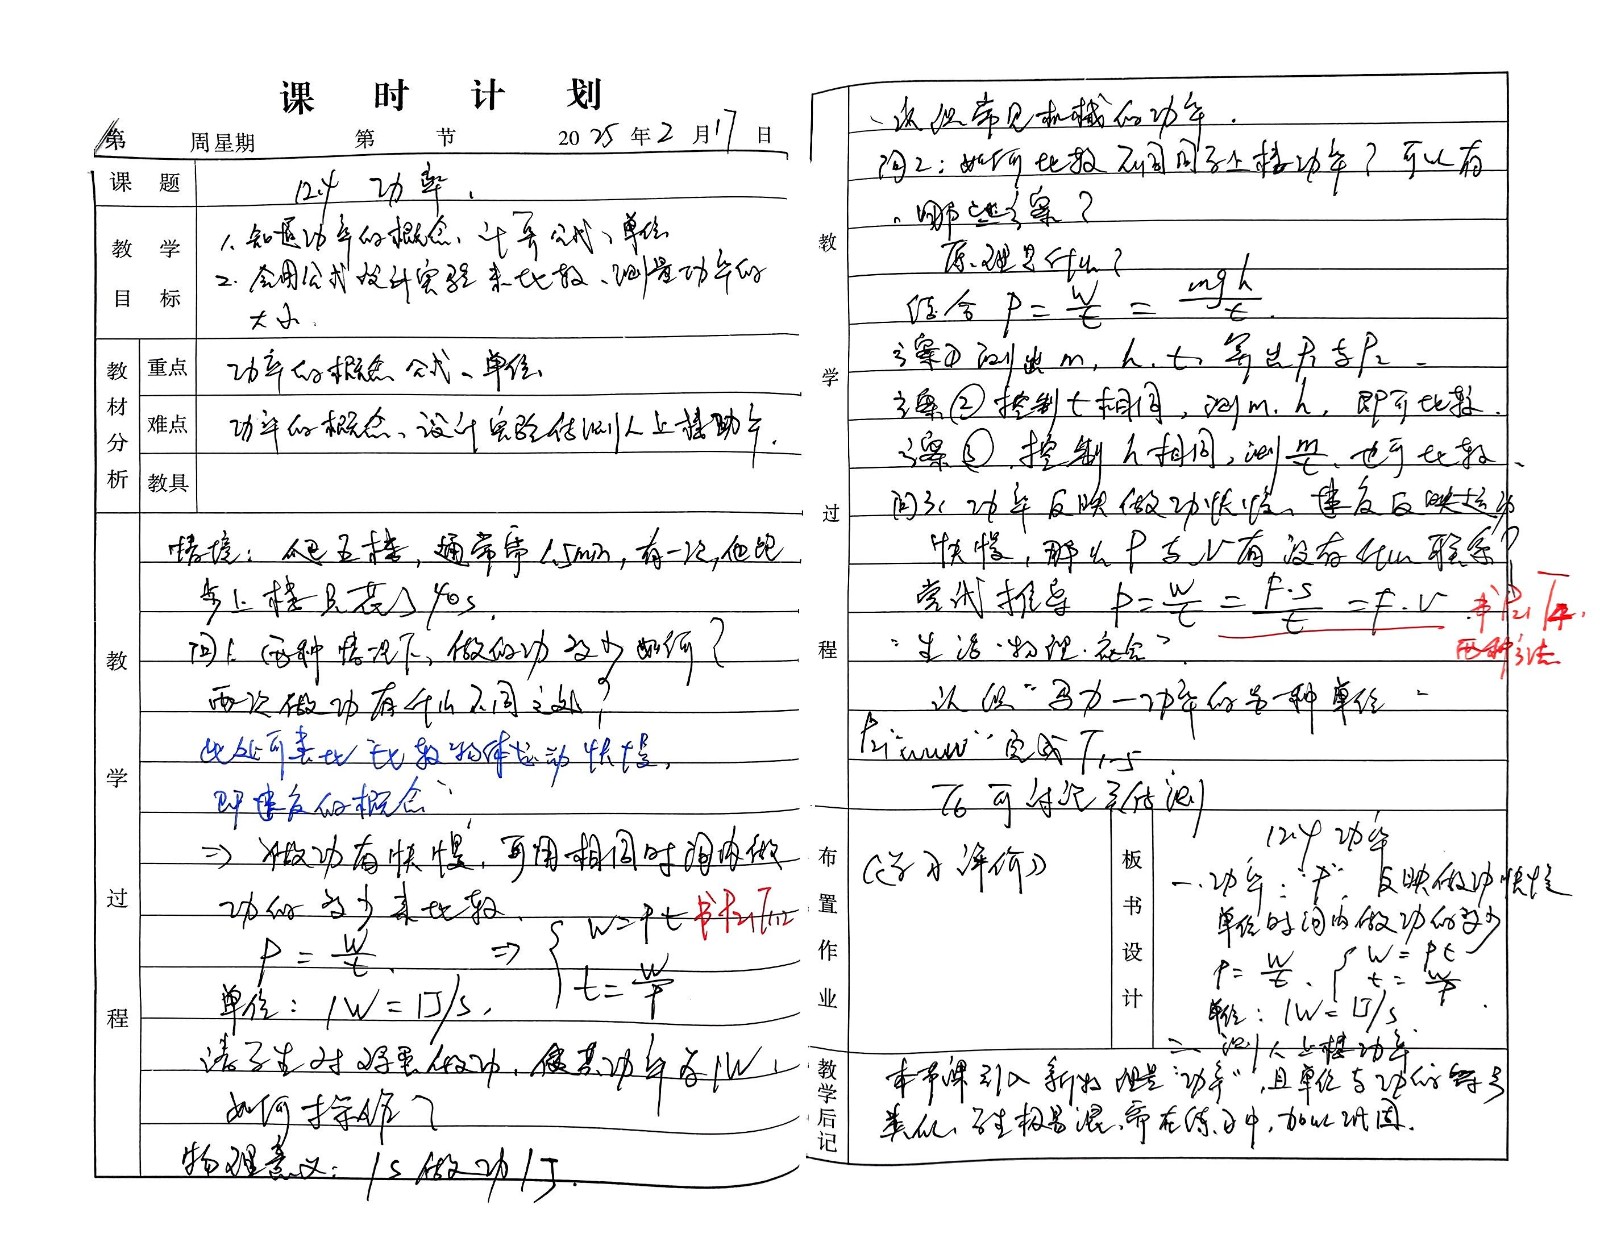 课时计划
第 周星期 第 节 2025年2月17日
课题 12.4 功率.
教学目标
1. 知道功率的概念、计算公式、单位
2. 会用公式设计实验来比较、测量功率的
大小.
教材分析
重点 功率的概念 公式、单位.
难点 功率的概念、设计实验估测人上楼功率.
教具
教学过程
情境: 爬五楼, 通常需1.5min, 有一次, 他跑
步上楼只花了40s.
问1: 两种情况下, 做的功多少如何?
两次做功有什么不同之处?
此处可类比比较物体运动快慢,
即速度的概念
⇒ 做功有快慢, 可用相同时间内做
功的多少来比较.
书P21 T1.2
P = W/t. ⇒ { W = Pt
t = W/P
单位: 1W = 1J/s.
请学生对 做功, 使其功率为1W,
如何操作?
物理意义: 1s做功1J.
教学过程
、认识常见机械的功率.
问2: 如何比较不同同学上楼功率? 可以有
哪些方案?
原理是什么?
结合 P = W/t = mgh/t.
方案① 测出m, h, t, 算出P1与P2.
方案② 控制t相同, 测m.h, 即可比较.
方案③, 控制h相同, 测m/t, 也可比较、
问3: 功率反映做功快慢、速度反映运动
快慢, 那么P与V有没有什么联系?
尝试推导 P = W/t = F·s/t = F·V.
书P21 T4.
两种方法
"生活·物理·社会"
认识"马力—功率的另一种单位
P21 "www" 完成T1-5
T6可讨论 估测
布置作业
《学习评价》
板书设计
12.4 功率
一. 功率: "P" 反映做功快慢
单位时间内做功的多少
P = W/t. { W = Pt
t = W/P
单位: 1W = 1J/s.
二、测人上楼功率
教学后记
本节课引入新物理量"功率", 且单位与功的符号
类似, 学生极易混, 需在练习中, 加以巩固.